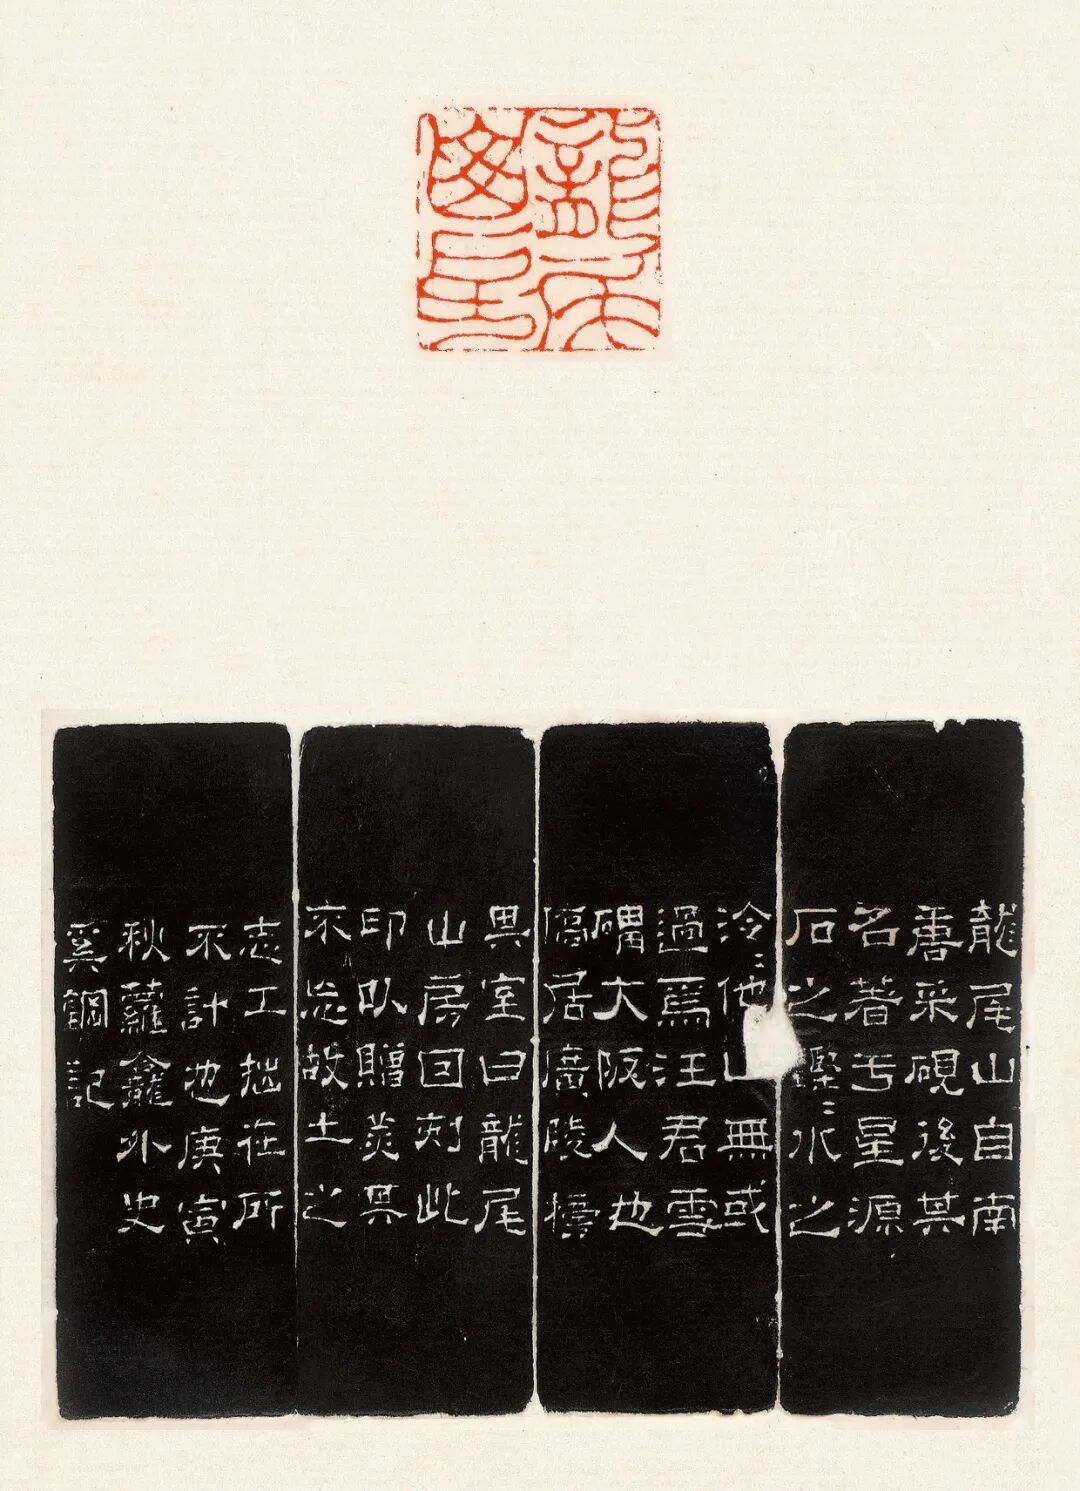 龍尾山自南
唐采硯後其
名著于星源
石之堅〻水之
泠〻他山無或
過焉汪君雪
礓大阪人也
僑居廣陵榜
其室曰龍尾
山房因刻此
印以贈美其
不忘故土之
志工拙在所
不計也庚寅
秋蘿龕外史
奚鋼記